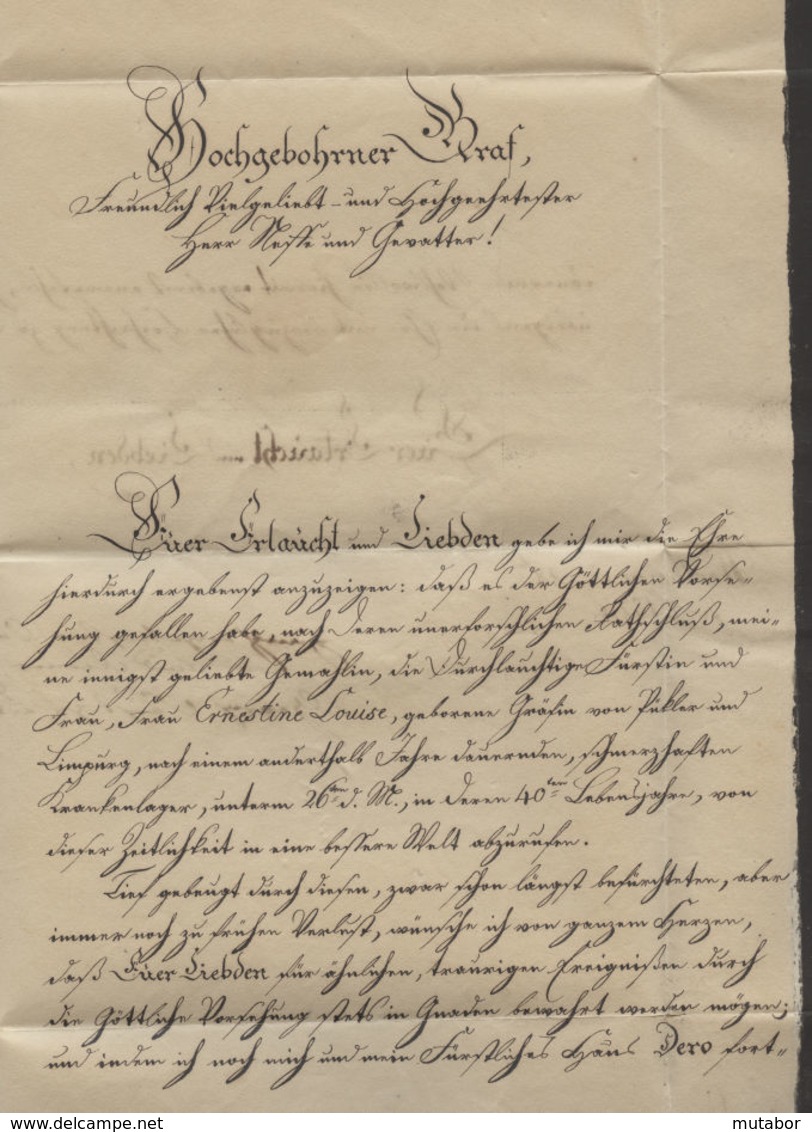 Hochgebohrner Graf,
Freundlich Vielgeliebt- und Hochgeehrtester
Herr Neffe und Gevatter!
Euer Erlaucht und Liebden gebe ich mir die Ehre
hierdurch ergebenst anzuzeigen: daß es der Göttlichen Vorse-
hung gefallen habe, nach Deren unerforschlichen Rathschluß, mei-
ne innigst geliebte Gemahlin, die Durchlauchtige Fürstin und
Frau, Frau Ernestine Louise, geborene Gräfin von Pükler und
Limpurg, nach einem anderthalb Jahre dauernden, schmerzhaften
Krankenlager, unterm 26ten d. M., in Deren 40ten Lebensjahre, von
dieser Zeitlichkeit in eine bessere Welt abzurufen.
Tief gebeugt durch diesen, zwar schon längst befürchteten, aber
immer noch zu frühen Verlust, wünsche ich von ganzem Herzen,
daß Euer Liebden für ähnlichen, traurigen Ereignißen durch
die Göttliche Vorsehung stets in Gnaden bewahrt werden mögen;
und indem ich noch mich und mein Fürstliches Haus Dero fort-
www.delcampe.net
mutabor